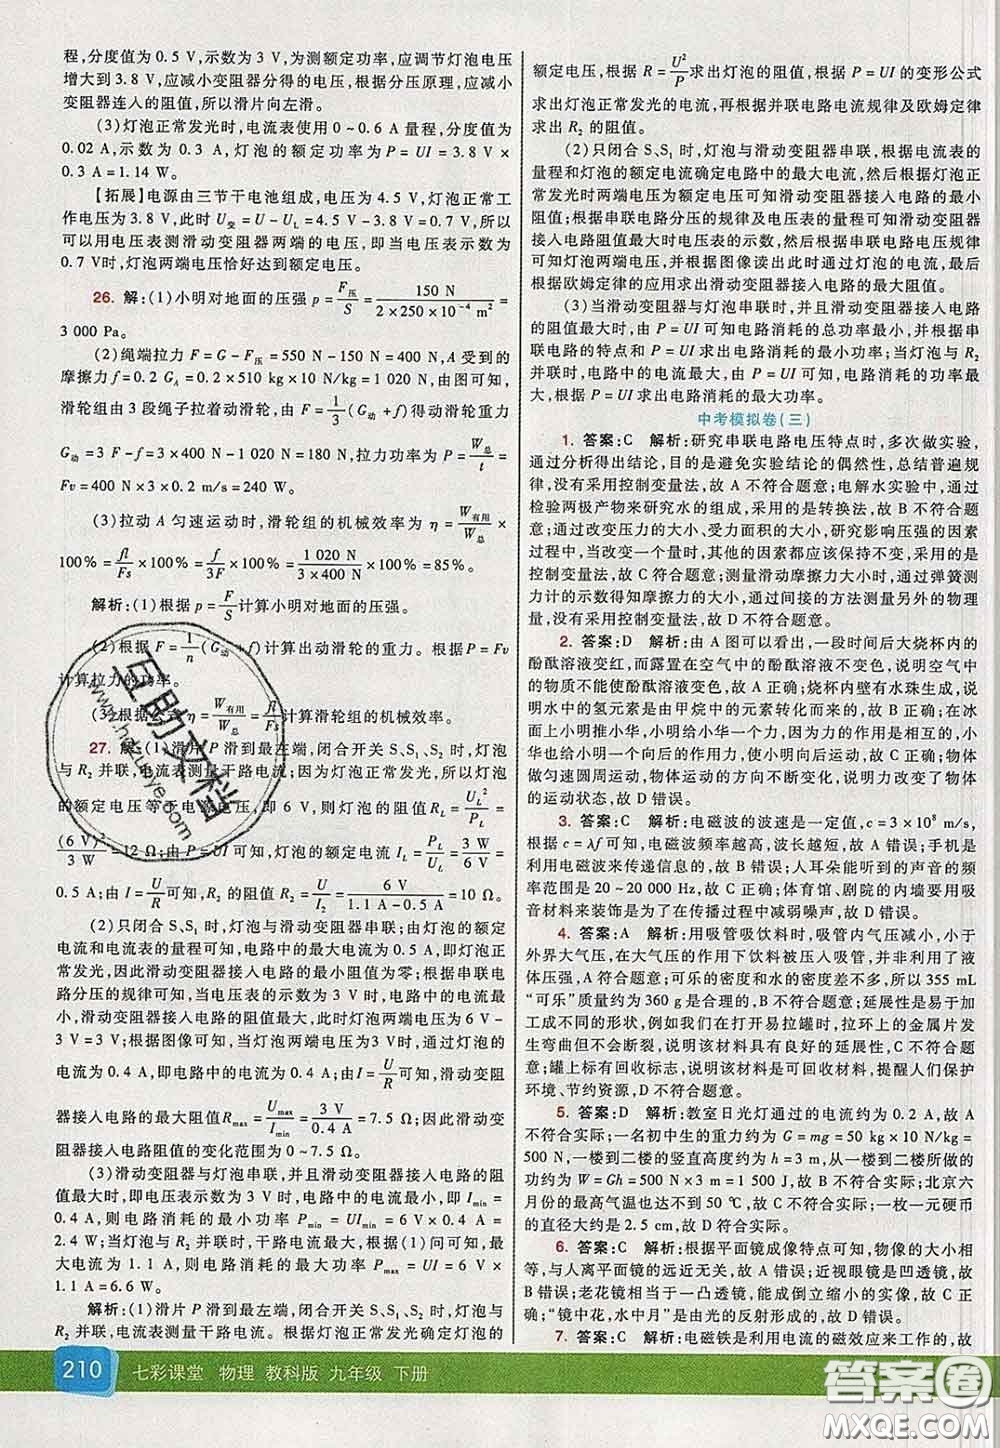 程,分度值为 0.5 V,示数为 3 V,为测额定功率,应调节灯泡电压
增大到 3.8 V,应减小变阻器分得的电压,根据分压原理,应减小
变阻器连入的阻值,所以滑片向左滑。
(3)灯泡正常发光时,电流表使用 0~0.6 A 量程,分度值为
0.02 A,示数为 0.3 A,灯泡的额定功率为 P=UI=3.8 V×
0.3 A=1.14 W。
【拓展】电源由三节干电池组成,电压为 4.5 V,灯泡正常工
作电压为 3.8 V,此时 U变=U-UL=4.5 V-3.8 V=0.7 V,所以
可以用电压表测滑动变阻器两端的电压,即当电压表示数为
0.7 V时,灯泡两端电压恰好达到额定电压。
26. 解:(1)小明对地面的压强 p=F压/S=150 N/(2×250×10⁻⁴ m²)=
3 000 Pa。
(2)绳端拉力 F=G-F压=550 N-150 N=400 N,A 受到的
摩擦力 f=0.2 GA=0.2×510 kg×10 N/kg=1 020 N,由图可知,
滑轮组由 3 段绳子拉着动滑轮,由 F=1/3(G动+f)得动滑轮重力
G动=3 F-f=3×400 N-1 020 N=180 N,拉力功率为 P=W总/t=
Fv=400 N×3×0.2 m/s=240 W。
(3)拉动 A 匀速运动时,滑轮组的机械效率为 η=W有用/W总×
100%=fl/Fs×100%=f/3F×100%=1 020 N/(3×400 N)×100%=85%。
解析:(1)根据 p=F/S计算小明对地面的压强。
(2)根据 F=1/n(G动+f)计算出动滑轮的重力。根据 P=Fv
计算拉力的功率。
(3)根据公式 η=W有用/W总=fl/Fs计算滑轮组的机械效率。
27. 解:(1)滑片 P 滑到最左端,闭合开关 S、S₁、S₂ 时,灯泡
与 R₂ 并联,电流表测量干路电流;因为灯泡正常发光,所以灯泡
的额定电压等于电源电压,即 6 V,则灯泡的阻值 RL=UL²/PL=
(6 V)²/3 W=12 Ω;由 P=UI 可知,灯泡的额定电流 IL=PL/UL=3 W/6 V=
0.5 A;由 I=U/R可知,R₂ 的电阻值 R₂=U/I₂=6 V/(1.1 A-0.5 A)=10 Ω。
(2)只闭合 S、S₁ 时,灯泡与滑动变阻器串联;由灯泡的额定
电流和电流表的量程可知,电路中的最大电流为 0.5 A,即灯泡正
常发光,因此滑动变阻器接入电路的最小阻值为零;根据串联电路
分压的规律可知,当电压表的示数为 3 V 时,电路中的电流最小,
滑动变阻器接入电路的阻值最大,此时灯泡两端电压为 6 V-3 V
=3 V;由图像可知,当灯泡两端电压为3V时,通过灯泡的电流为
0.4 A,即电路中的电流为 0.4 A;由 I=U/R可知,滑动变阻
器接入电路的最大阻值Rmax=Umax/Imin=3 V/0.4 A=7.5 Ω;因此滑动变
阻器接入电路阻值的变化范围为 0~7.5 Ω。
(3)滑动变阻器与灯泡串联,并且滑动变阻器接入电路的阻
值最大时,即电压表示数为 3 V 时,电路中的电流最小,即 Imin=
0.4 A,则电路消耗的最小功率 Pmin=UImin=6 V×0.4 A=
2.4 W;当灯泡与 R₂ 并联时,干路电流最大,根据(1)问可知,最
大电流为 1.1 A,则电路消耗的最大功率 Pmax=UI=6 V×
1.1 A=6.6 W。
解析:(1)滑片 P 滑到最左端,闭合开关 S、S₁、S₂ 时,灯泡与
R₂ 并联,电流表测量干路电流。根据灯泡正常发光确定灯泡的
额定电压,根据 R=U²/P求出灯泡的阻值,根据 P=UI 的变形公式
求出灯泡正常发光的电流,再根据并联电路电流规律及欧姆定律
求出 R₂ 的阻值。
(2)只闭合 S、S₁ 时,灯泡与滑动变阻器串联,根据电流表的
量程和灯泡的额定电流确定电路中的最大电流,然后根据灯泡正
常发光时两端电压为额定电压可知滑动变阻器接入电路的最小
阻值;根据串联电路分压的规律及电压表的量程可知滑动变阻器
接入电路阻值最大时电压表的示数,然后根据串联电路电压规律
可知灯泡两端电压,再根据图像读出此时通过灯泡的电流,根据
欧姆定律的应用求出滑动变阻器接入电路的最大阻值。
(3)当滑动变阻器与灯泡串联时,并且滑动变阻器接入电路
的阻值最大时,根据 P=UI 可知电路消耗的总功率最小,并根据串
联电路的特点和 P=UI 求出电路消耗的最小功率;当灯泡与 R₂
并联时,电路中的电流最大,由 P=UI 可知,电路消耗的功率最
大,根据 P=UI 求出电路消耗的最大功率。
中考模拟卷(三)
1. 答案:C 解析:研究串联电路电压特点时,多次做实验,
通过分析得出结论,目的是避免实验结论的偶然性,总结普遍规
律,没有采用控制变量法,故 A 不符合题意;电解水实验中,通过
检验两极产物来研究水的组成,采用的是转换法,故 B 不符合题
意;通过改变压力的大小、受力面积的大小,研究影响压强的因素
过程中,当改变一个量时,其他的因素都应该保持不变,采用的是
控制变量法,故 C 符合题意;测量滑动摩擦力大小时,通过弹簧测
力计的示数得知摩擦力大小,通过间接的方法测量另外的物理
量,没有采用控制变量法,故 D 不符合题意。
2. 答案:D 解析:由 A 图可以看出,一段时间后大烧杯内的
酚酞溶液变红,而露置在空气中的酚酞溶液不变色,说明空气中
的氨分子能使酚酞溶液变色,故 A 正确;烧杯内壁有水珠生成,
说明水中的氢元素是由甲烷中的元素转化而来的,故 B 正确;在
冰面上小明推小华,小明给小华一个力,因为力的作用是相互的,小
华也给小明一个向后的作用力,使小明向后运动,故 C 正确;物体
做匀速圆周运动,物体运动的方向不断变化,说明力改变了物体
的运动状态,故 D 错误。
3. 答案:C 解析:电磁波的波速是一定值,c=3×10⁸ m/s,
根据 c=λf 可知,电磁波频率越高,波长越短,故 A 错误;手机是
利用电磁波来传递信息的,故 B 错误;人耳朵能听到的声音的频
率范围是 20~20 000 Hz,故 C 正确;体育馆、剧院的内墙要用吸
音材料来装饰是为了在传播过程中减弱噪声,故 D 错误。
4. 答案:A 解析:用吸管吸饮料时,吸管内气压减小,小于
外界大气压,在大气压的作用下饮料被压入吸管,并非利用了液
体压强,A 符合题意;可乐的密度和水的密度差不多,所以 355 mL
“可乐”质量约为 360 g 是合理的,B 不符合题意;延展性是易于加
工成不同的形状,例如我们在打开易拉罐时,拉环上的金属片发
生弯曲但不会断裂,说明该材料具有良好的延展性,C 不符合题
意;罐上标有回收标志,说明该材料可以再利用,提醒人们保护
环境、节约资源,D 不符合题意。
5. 答案:D 解析:教室日光灯通过的电流约为 0.2 A,故 A
不符合实际;一名初中生的重力约为 G=mg=50 kg×10 N/kg=
500 N,一楼到二楼的竖直高度约为 h=3 m,从一楼到二楼所做的
功约为 W=Gh=500 N×3 m=1 500 J,故 B 不符合实际;北京六
月份的最高气温也达不到 50 ℃,故 C 不符合实际;一枚一元硬币
的直径大约是 2.5 cm,故 D 符合实际。
6. 答案:C 解析:根据平面镜成像特点可知,物像的大小相
等,与人离平面镜的远近无关,故 A 错误;近视眼镜是凹透镜,故
B 错误;老花镜相当于一凸透镜,能成倒立缩小的实像,故 C 正
确;“镜中花,水中月”是由光的反射形成的,故 D 错误。
7. 答案:C 解析:电磁铁是利用电流的磁效应来工作的,故
210 七彩课堂 物理 教科版 九年级 下册
互助文档
www.hzkunye.com
答案圈
MXQE.COM